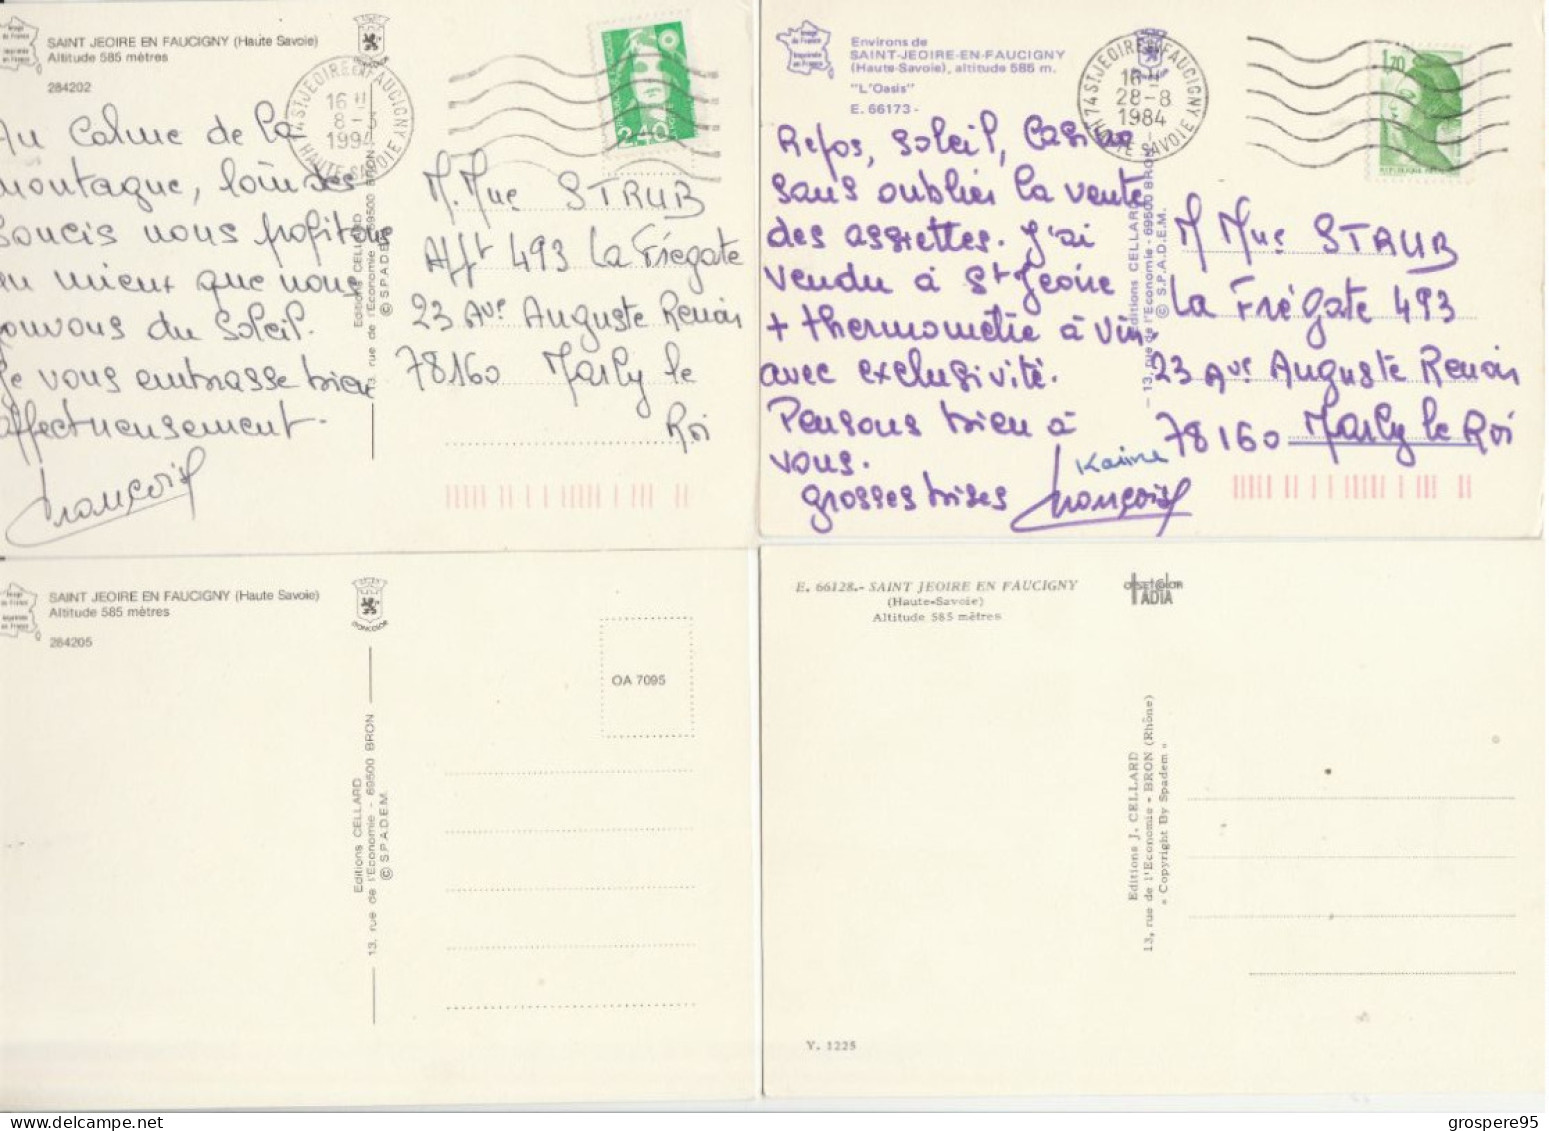 Image de France
Imprimée en France
SAINT JEOIRE EN FAUCIGNY (Haute Savoie)
Altitude 585 mètres
284202
74 ST JEOIRE EN FAUCIGNY
16 H
8-
1994
HAUTE SAVOIE
2,40
Au Calme de la
montagne, loin des
soucis nous profitons
au mieux que nous
pouvons du soleil.
Je vous embrasse bien
affectueusement.
Françoise
M. Mme STRUB
Afft 493 La Frégate
23 Ave Auguste Renoir
78160 Marly le
Roi
Editions CELLARD
13, rue de l'Economie - 69500 BRON
© S.P.A.D.E.M.
Image de France
Imprimée en France
Environs de
SAINT-JEOIRE-EN-FAUCIGNY
(Haute-Savoie), altitude 585 m.
"L'Oasis"
E. 66173 -
74 ST JEOIRE EN FAUCIGNY
16 H
28-8
1984
HAUTE SAVOIE
1,70
Repos, soleil, Casino
sans oublier la vente
des assiettes. J'ai
vendu à St Jeoire
+ thermomètre à vin
avec exclusivité.
Pensons bien à
vous.
grosses bises
Karine
Françoise
M Mme STRUB
La Frégate 493
23 Ave Auguste Renoir
78160 Marly le Roi
Editions CELLARD
13, rue de l'Economie - 69500 BRON
© S.P.A.D.E.M.
Image de France
Imprimée en France
SAINT JEOIRE EN FAUCIGNY (Haute Savoie)
Altitude 585 mètres
284205
OA 7095
Editions CELLARD
13, rue de l'Economie - 69500 BRON
© S.P.A.D.E.M.
E. 66128.- SAINT JEOIRE EN FAUCIGNY
(Haute-Savoie)
Altitude 585 mètres
Editions J. CELLARD
13, rue de l'Economie - BRON (Rhône)
« Copyright By Spadem »
Y. 1225
grospere95